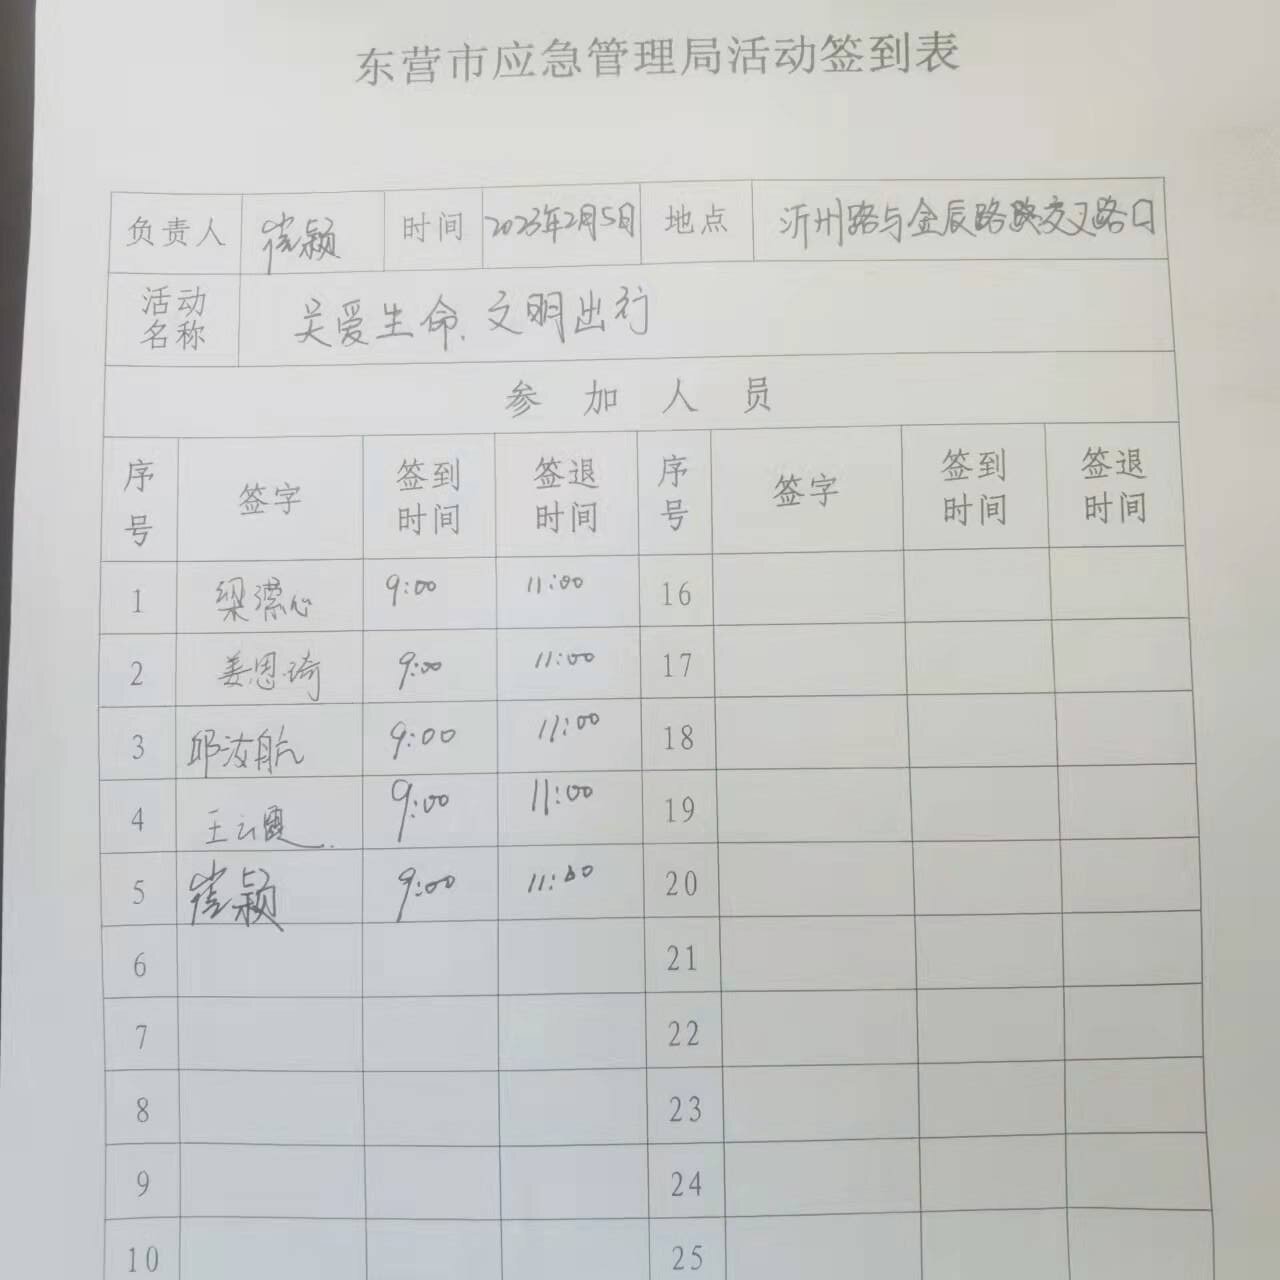 东营市应急管理局活动签到表
负责人 崔颖 时间 2023年2月5日 地点 沂州路与金辰路交叉路口
活动名称 关爱生命.文明出行
参加人员
序号 签字 签到时间 签退时间 序号 签字 签到时间 签退时间
1 梁潆心 9:00 11:00 16
2 姜恩琦 9:00 11:00 17
3 邱汝航 9:00 11:00 18
4 王云霞. 9:00 11:00 19
5 崔颖 9:00 11:00 20
6 21
7 22
8 23
9 24
10 25